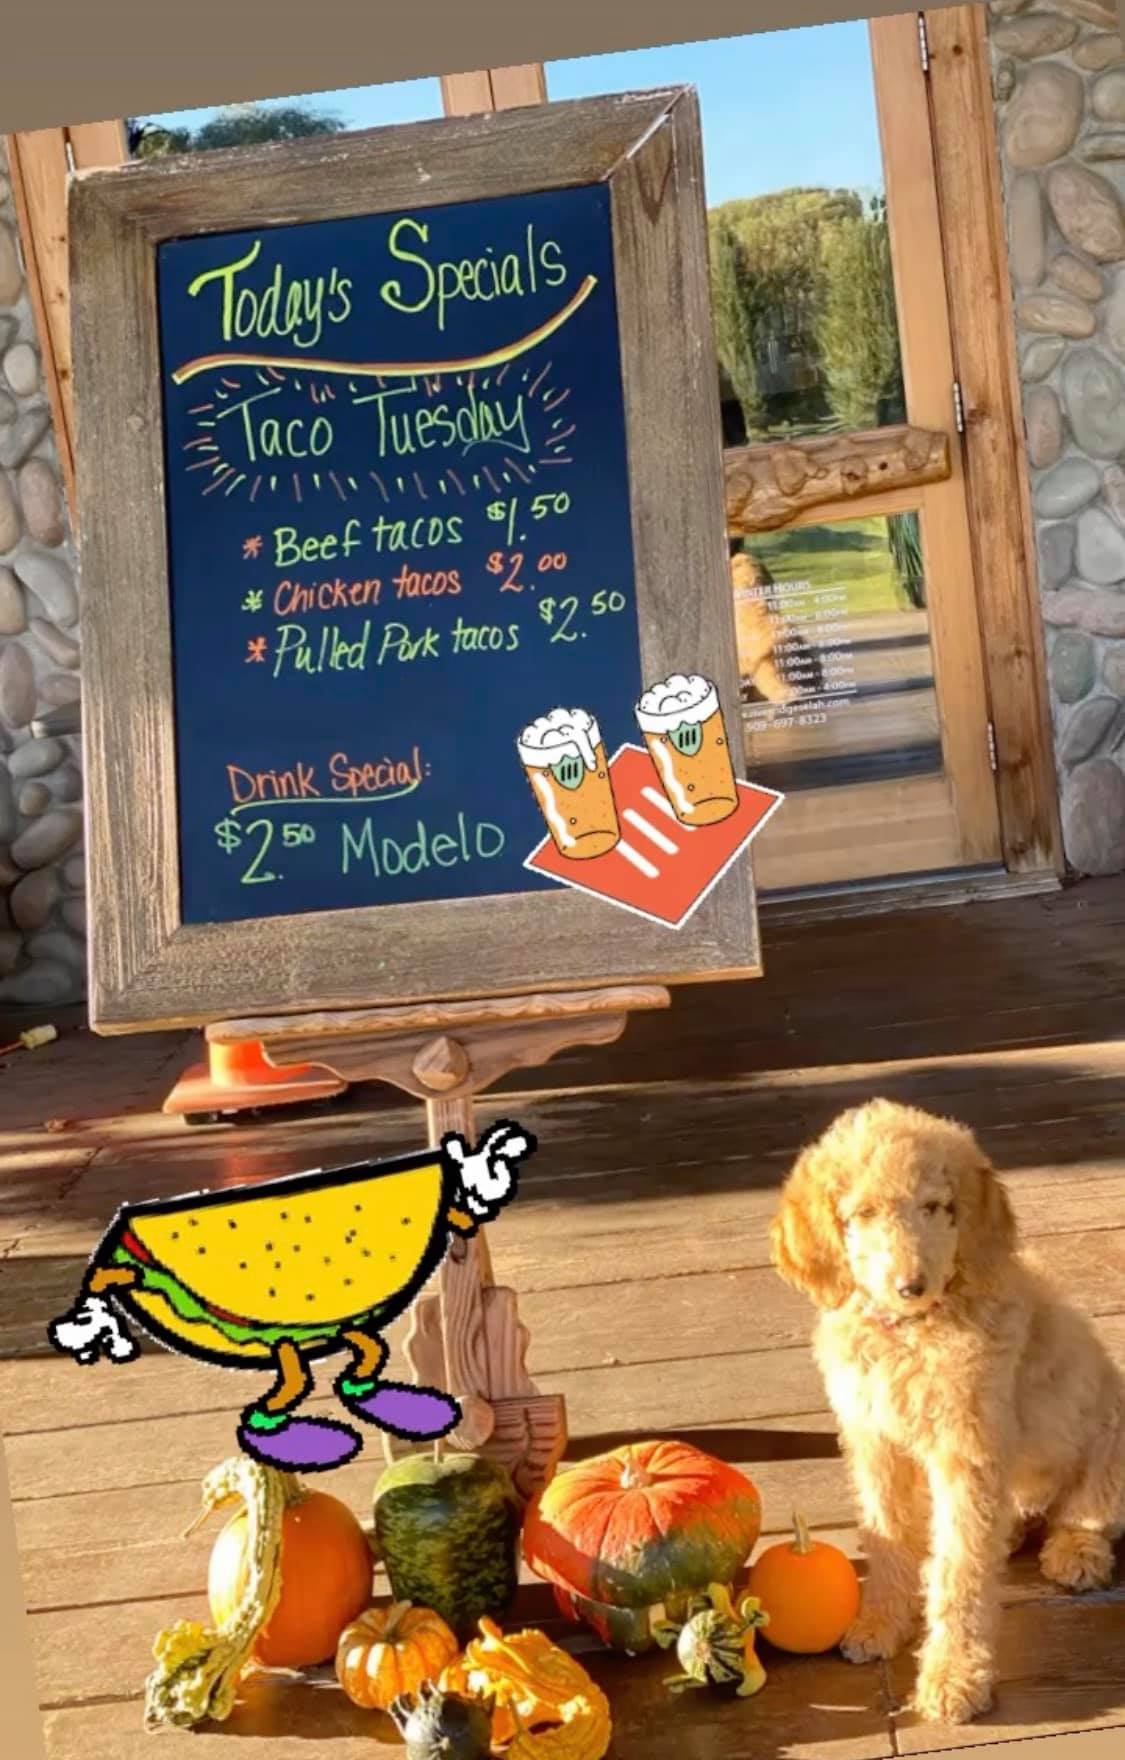 Today's Specials
Taco Tuesday
* Beef tacos $1.50
* Chicken tacos $2.00
* Pulled Pork tacos $2.50
Drink Special:
$2.50 Modelo
HOURS
11:00AM - 4:00PM
11:00AM - 8:00PM
11:00AM - 8:00PM
509-697-8323